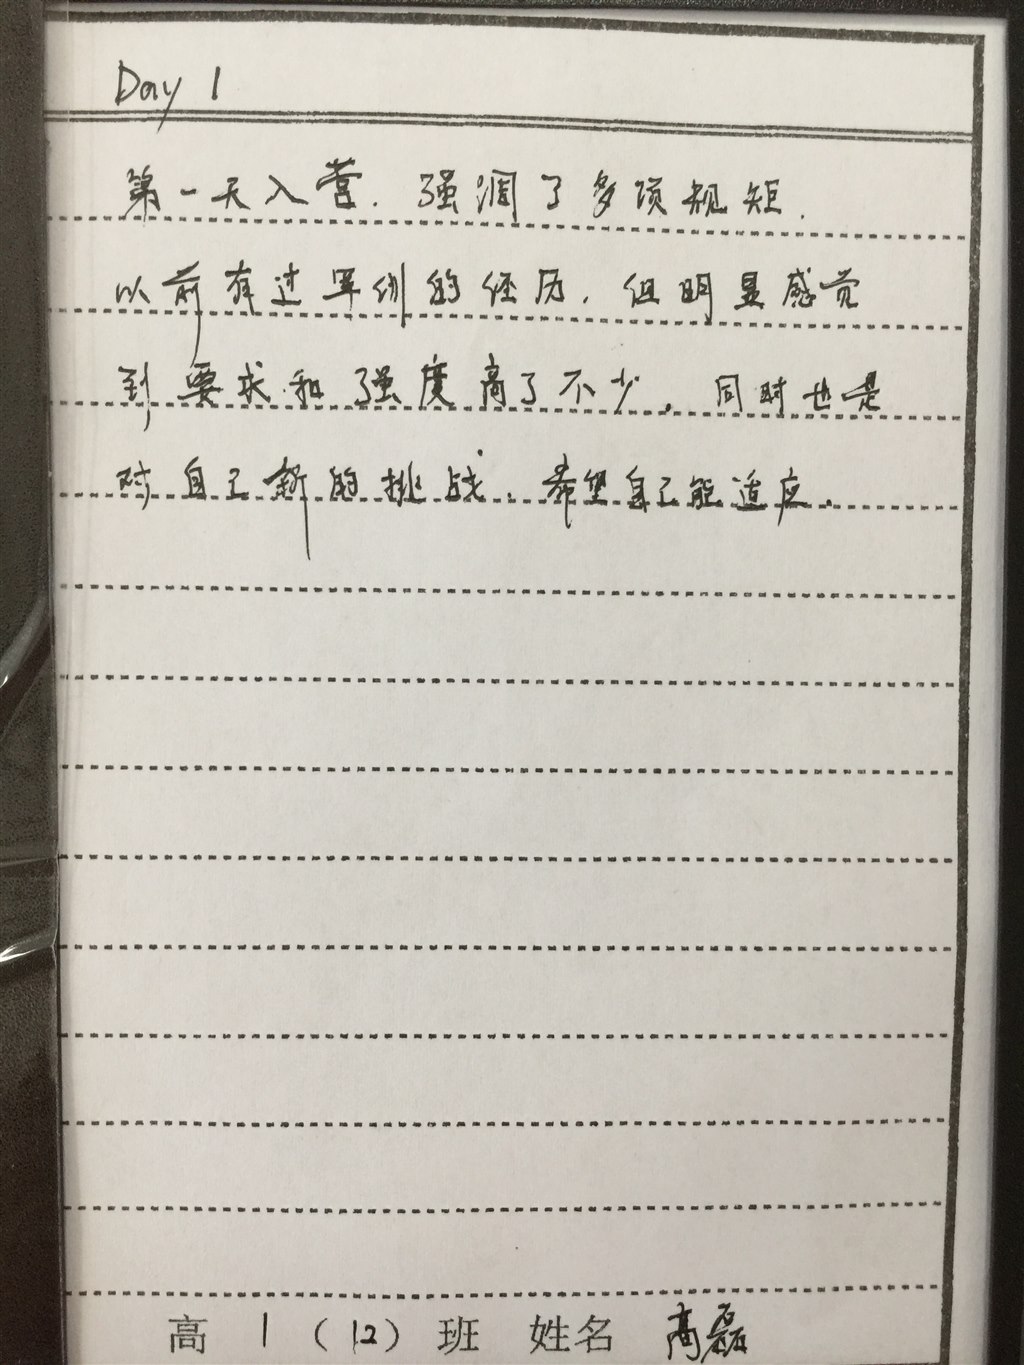 Day 1
第一天入营.强调了多项规矩.
以前有过军训的经历,但明显感觉
到要求和强度高了不少.同时也是
对自己新的挑战.希望自己能适应.
高 1 (12) 班 姓名 高磊